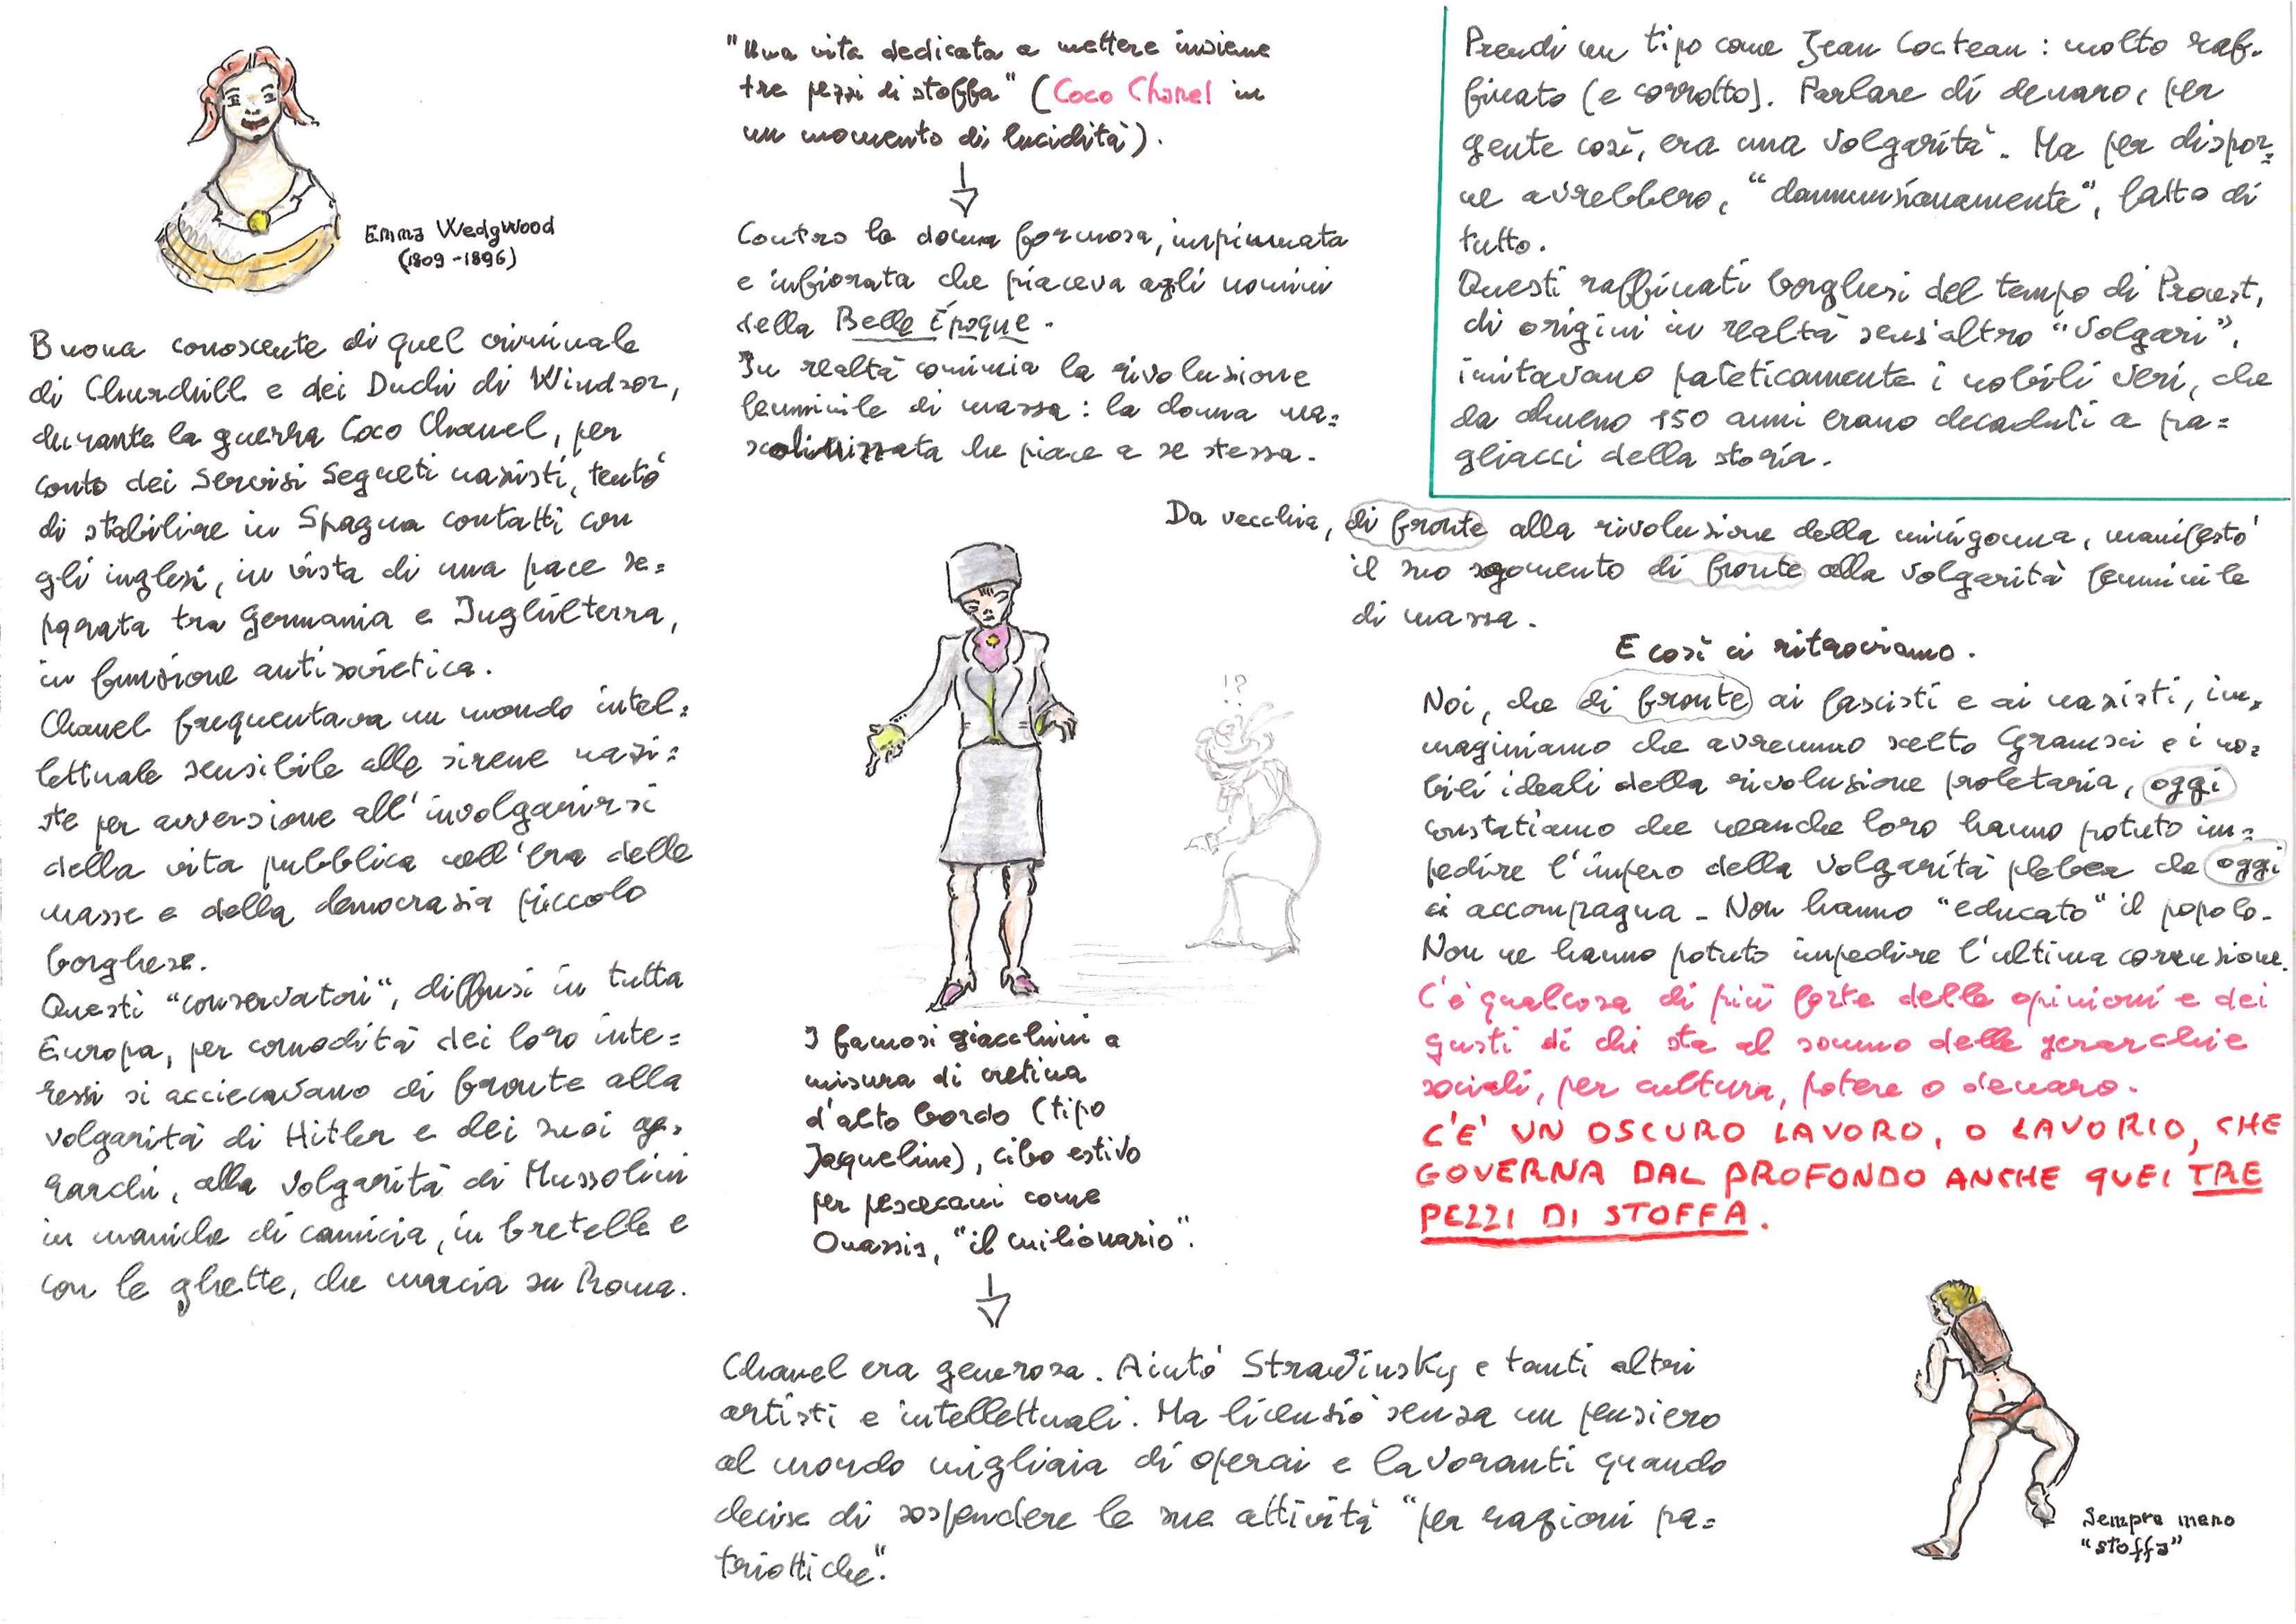 Emma Wedgwood
(1809-1896)
Buona conoscente di quel criminale
di Churchill e dei Duchi di Windsor,
durante la guerra Coco Chanel, per
conto dei Servizi Segreti nazisti, tentò
di stabilire in Spagna contatti con
gli inglesi, in vista di una pace se=
parata tra Germania e Inghilterra,
in funzione antisovietica.
Chanel frequentava un mondo intel=
lettuale sensibile alle sirene nazi=
ste per avversione all'involgarirsi
della vita pubblica nell'Era delle
masse e della democrazia piccolo
borghese.
Questi "conservatori", diffusi in tutta
Europa, per comodità dei loro inte=
ressi si acciecavano di fronte alla
volgarità di Hitler e dei suoi ge=
rarchi, alla volgarità di Mussolini
in maniche di camicia, in bretelle e
con le ghette, che marcia su Roma.
"Una vita dedicata a mettere insieme
tre pezzi di stoffa" (Coco Chanel in
un momento di lucidità).
Contro la donna formosa, impiumata
e infiorata che piaceva agli uomini
della Belle Époque.
In realtà comincia la rivoluzione
femminile di massa: la donna ma=
scolinizzata che piace a se stessa.
I famosi giacchini a
misura di cretina
d'alto bordo (tipo
Jaqueline), cibo estivo
per pescecani come
Onassis, "il milionario".
Chanel era generosa. Aiutò Stravinsky e tanti altri
artisti e intellettuali. Ma licenziò senza un pensiero
al mondo migliaia di operai e lavoranti quando
decise di sospendere le sue attività "per ragioni pa=
triottiche".
Prendi un tipo come Jean Cocteau: molto raf=
finato (e corrotto). Parlare di denaro, per
gente così, era una volgarità. Ma per dispor=
ne avrebbero, "dannunzianamente", fatto di
tutto.
Questi raffinati borghesi del tempo di Proust,
di origini in realtà senz'altro "volgari",
imitavano pateticamente i nobili veri, che
da almeno 150 anni erano decaduti a pa=
gliacci della storia.
Da vecchia, di fronte alla rivoluzione della minigonna, manifestò
il suo sgomento di fronte alla volgarità femminile
di massa.
E così ci ritroviamo.
!?
Noi, che di fronte ai fascisti e ai nazisti, im=
maginiamo che avremmo scelto Gramsci e i no=
bili ideali della rivoluzione proletaria, oggi
constatiamo che neanche loro hanno potuto im=
pedire l'impero della volgarità plebea che oggi
ci accompagna. Non hanno "educato" il popolo.
Non ne hanno potuto impedire l'ultima corruzione.
C'è qualcosa di più forte delle opinioni e dei
gusti di chi sta al sommo delle gerarchie
sociali, per cultura, potere o denaro.
C'E' UN OSCURO LAVORO, O LAVORIO, CHE
GOVERNA DAL PROFONDO ANCHE QUEI TRE
PEZZI DI STOFFA.
Sempre meno
"stoffa"